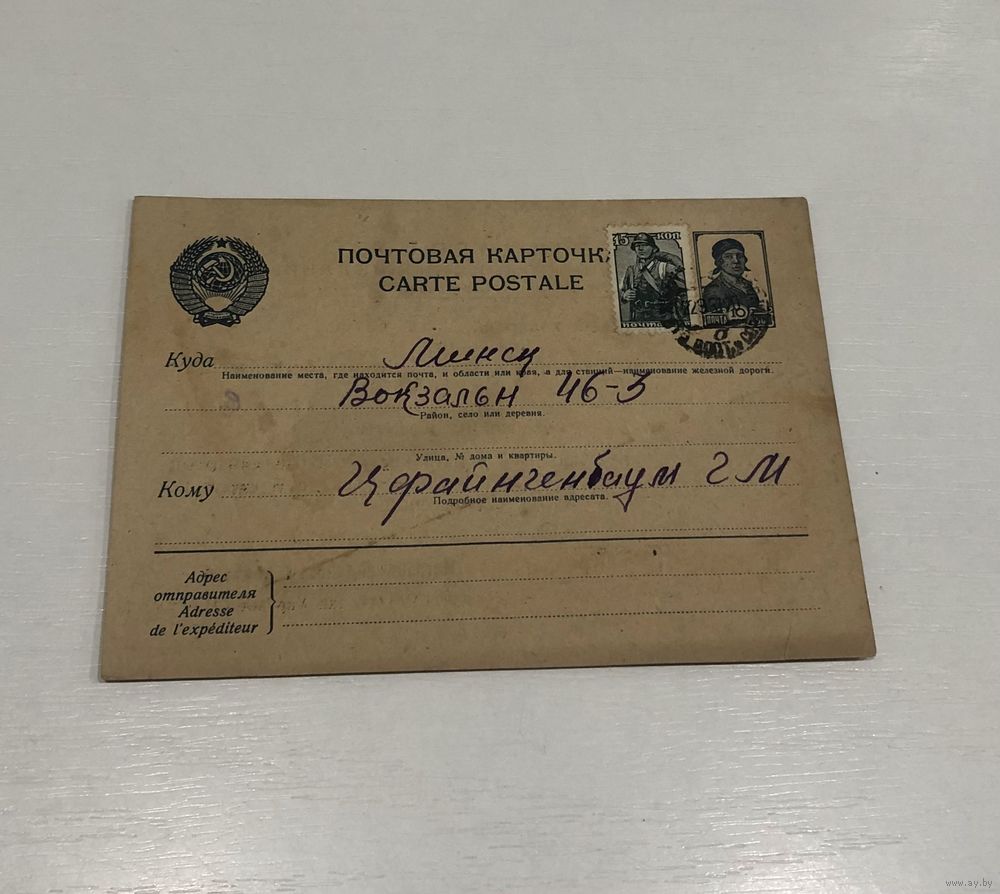 ПОЧТОВАЯ КАРТОЧК
CARTE POSTALE
15 КОП
ПОЧТА
ПОЧТА 10
Куда Минск
Наименование места, где находится почта, и области или края, а для станций—наименование железной дороги.
Вокзальн 46-5
Район, село или деревня.
Улица, № дома и квартиры.
Кому Цфайнгенбаум Г М
Подробное наименование адресата.
Адрес
отправителя
Adresse
de l'expéditeur
www.ay.by